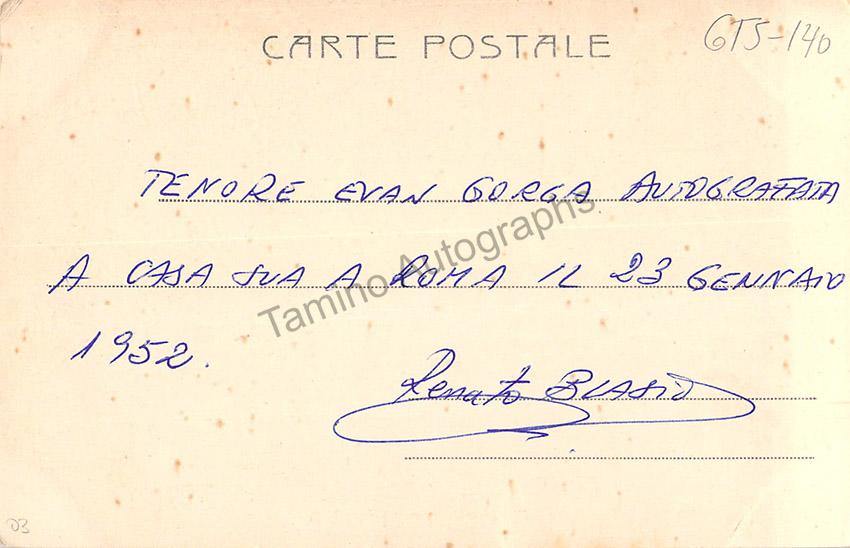 CARTE POSTALE
GTS-140
TENORE EVAN GORGA AUTOGRAFATA
A CASA SUA A ROMA IL 23 GENNAIO
1952.
Renato BLASIO
Tamino Autographs
D3